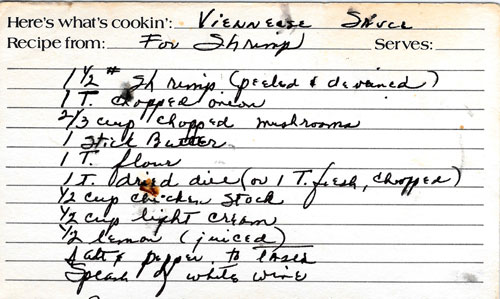 Here's what's cookin': Viennese Sauce
Recipe from: For Shrimp Serves:
1 1/2 # Shrimp (peeled & deveined)
1 T. chopped onion
2/3 cup chopped mushrooms
1 Stick Butter
1 T. flour
1 T. dried dill (or 1 T. fresh, chopped)
1/2 cup chicken stock
1/2 cup light cream
1/2 lemon (juiced)
Salt & pepper to taste
Splash of white wine